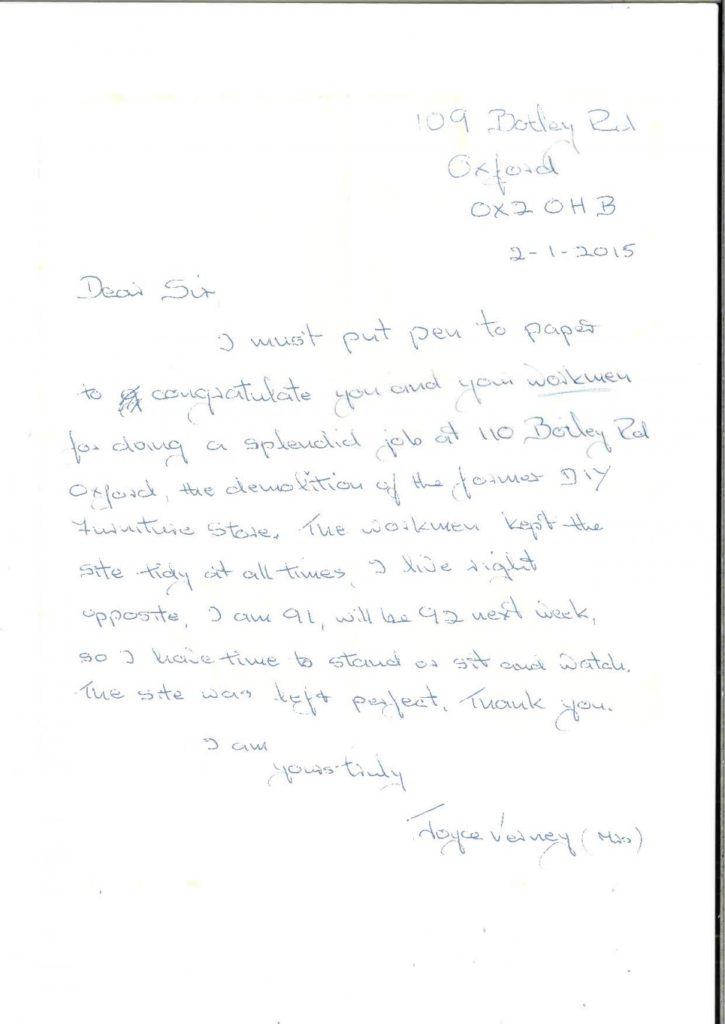 109 Botley Rd
Oxford
OX2 0HB
2-1-2015
Dear Sir
I must put pen to paper
to congratulate you and your workmen
for doing a splendid job at 110 Botley Rd
Oxford, the demolition of the former DIY
furniture store. The workmen kept the
site tidy at all times, I live right
opposite, I am 91, will be 92 next week,
so I have time to stand or sit and watch.
The site was left perfect. Thank you.
I am
yours truly
Joyce Verney (Mrs)